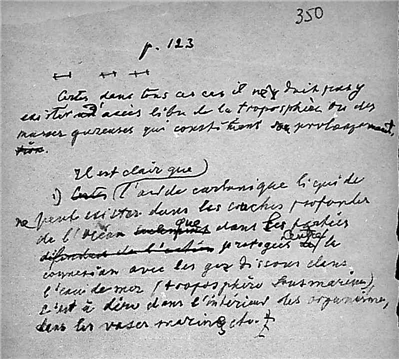 350
p. 123
Certes, dans tous ces cas il ne doit pas y
exister d'accès libre de la troposphère ou des
masses gazeuses qui constituent son prolongement.
Il est clair que
1) Certes (l'acide carbonique liquide
ne peut exister dans les couches profondes
de l'Océan que dans les parties
protégées de la
connexion avec les gaz dissous dans
l'eau de mer (troposphère sousmarine),
c'est à dire dans l'intérieur des organismes,
dans les vases marines, etc.